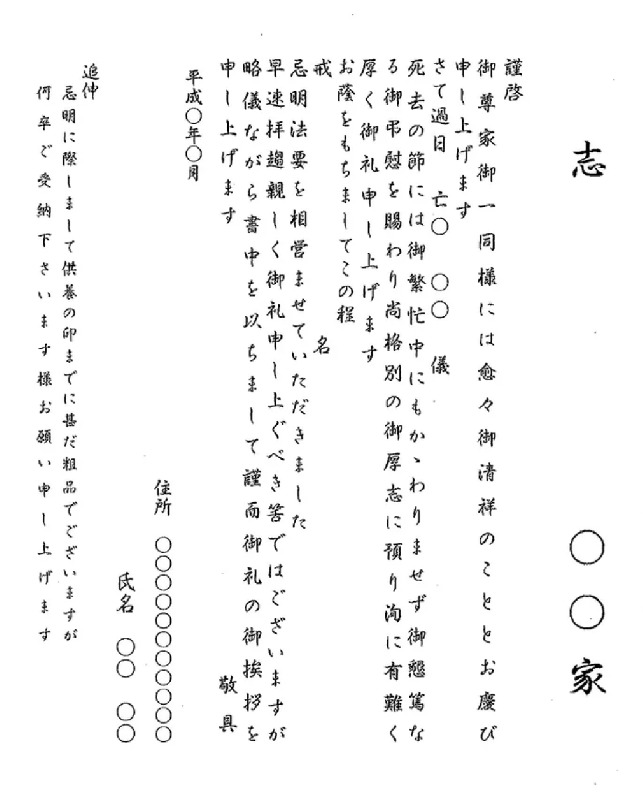 志
〇〇家
謹啓
御尊家御一同様には愈々御清祥のこととお慶び
申し上げます
さて過日 亡〇 〇〇 儀
死去の節には御繁忙中にもかゝわりませず御懇篤な
る御弔慰を賜わり尚格別の御厚志に預り洵に有難く
厚く御礼申し上げます
お蔭をもちましてこの程
戒 名
忌明法要を相営ませていただきました
早速拝趨親しく御礼申し上ぐべき筈ではございますが
略儀ながら書中を以ちまして謹而御礼の御挨拶を
申し上げます 敬具
平成〇年〇月
住所 〇〇〇〇〇〇〇〇〇〇〇
氏名 〇〇 〇〇
追伸
忌明に際しまして供養の印までに甚だ粗品でございますが
何卒ご受納下さいます様お願い申し上げます